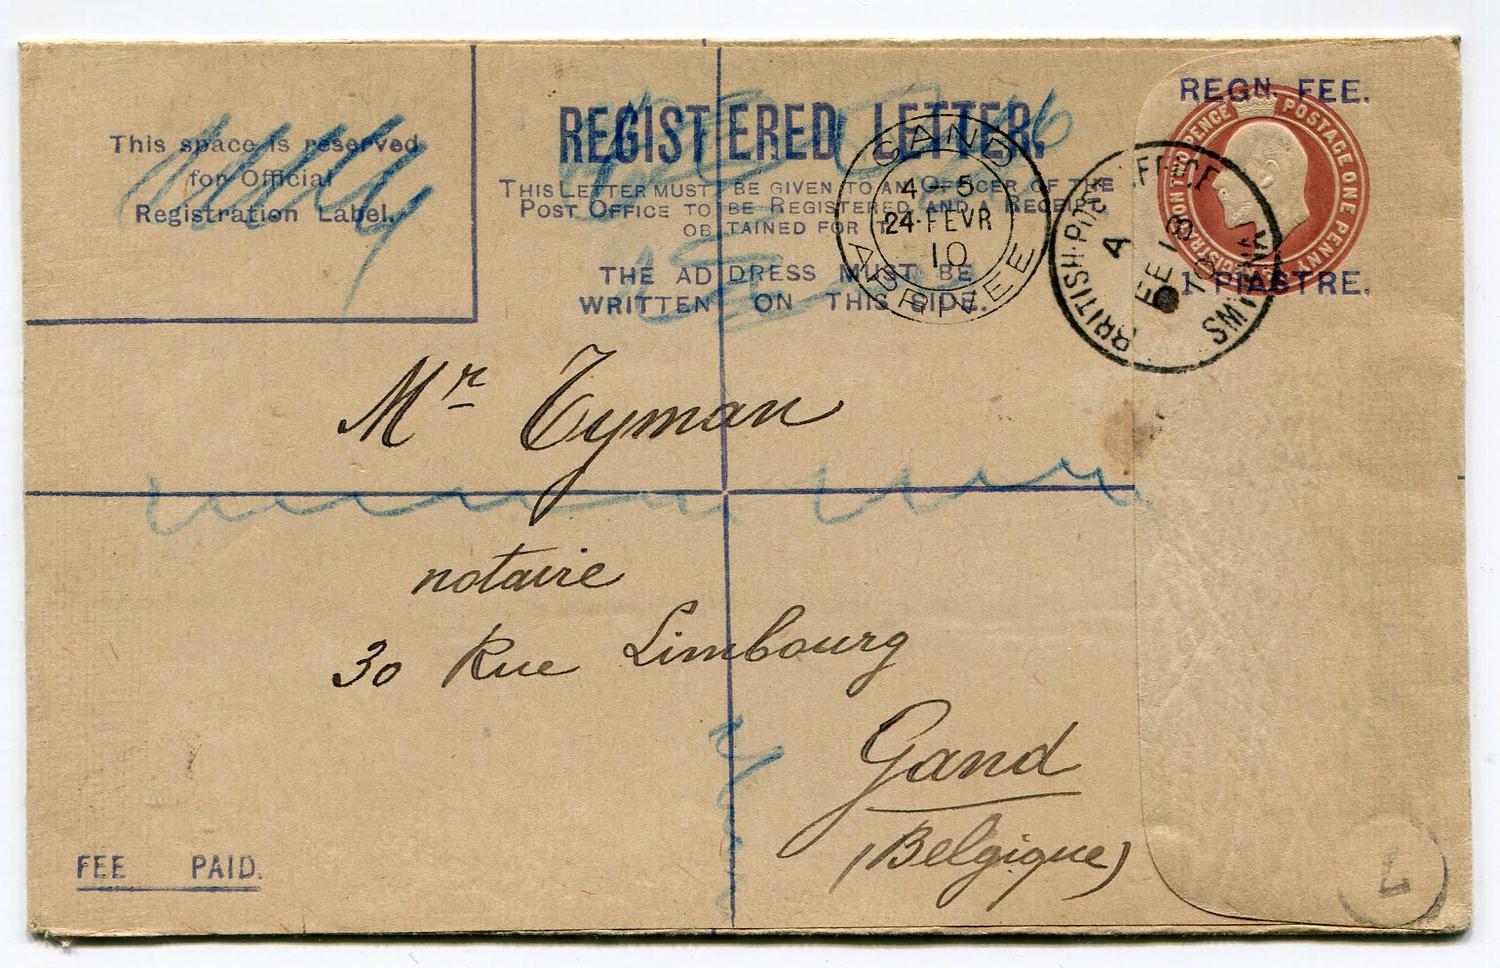 This space is reserved
for Official
Registration Label.
REGISTERED LETTER.
THIS LETTER MUST BE GIVEN TO AN OFFICER OF THE
POST OFFICE TO BE REGISTERED AND A RECEIPT
OBTAINED FOR IT
THE ADDRESS MUST BE
WRITTEN ON THIS SIDE.
REGN. FEE.
REGISTRATION TWO PENCE
POSTAGE ONE PENNY
1 PIASTRE.
GAND
4-5
24·FEVR
10
ARRIVEE
BRITISH·POST OFFICE
A
FE 18
10
SMYRNA
Mr Tyman
notaire
30 Rue Limbourg
Gand
(Belgique)
FEE PAID.
L